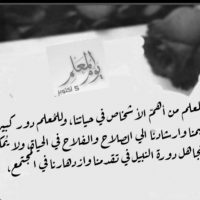 يوم المعلم
5 أكتوبر
لمعلم من أهم الأشخاص في حياتنا، وللمعلم دور كبير
يمنا وارشادنا الي الصلاح والفلاح في الحياة، ولا يمك
جاهل دورة النبيل في تقدمنا وازدهارنا في المجتمع،